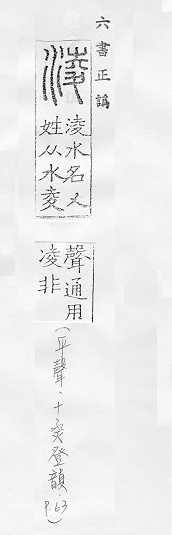 六書正譌
淩
淩水名又
姓从水夌
聲通用
凌非
(平聲、十烝登韻.P.63)